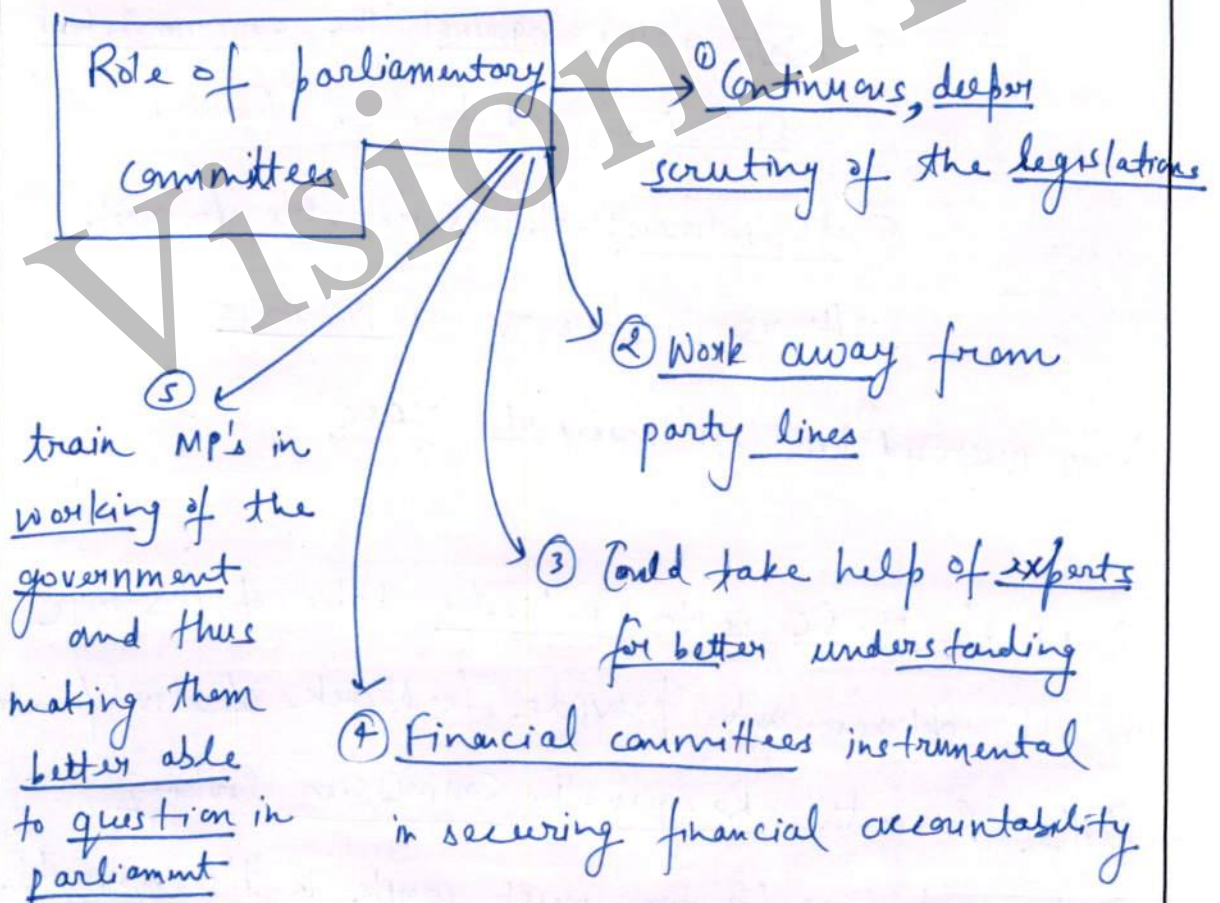 Role of parliamentary
committees
① Continuous, deeper
scrutiny of the legislations
② Work away from
party lines
③ Could take help of experts
for better understanding
④ Financial committees instrumental
in securing financial accountability
⑤
train MP's in
working of the
government
and thus
making them
better able
to question in
parliament